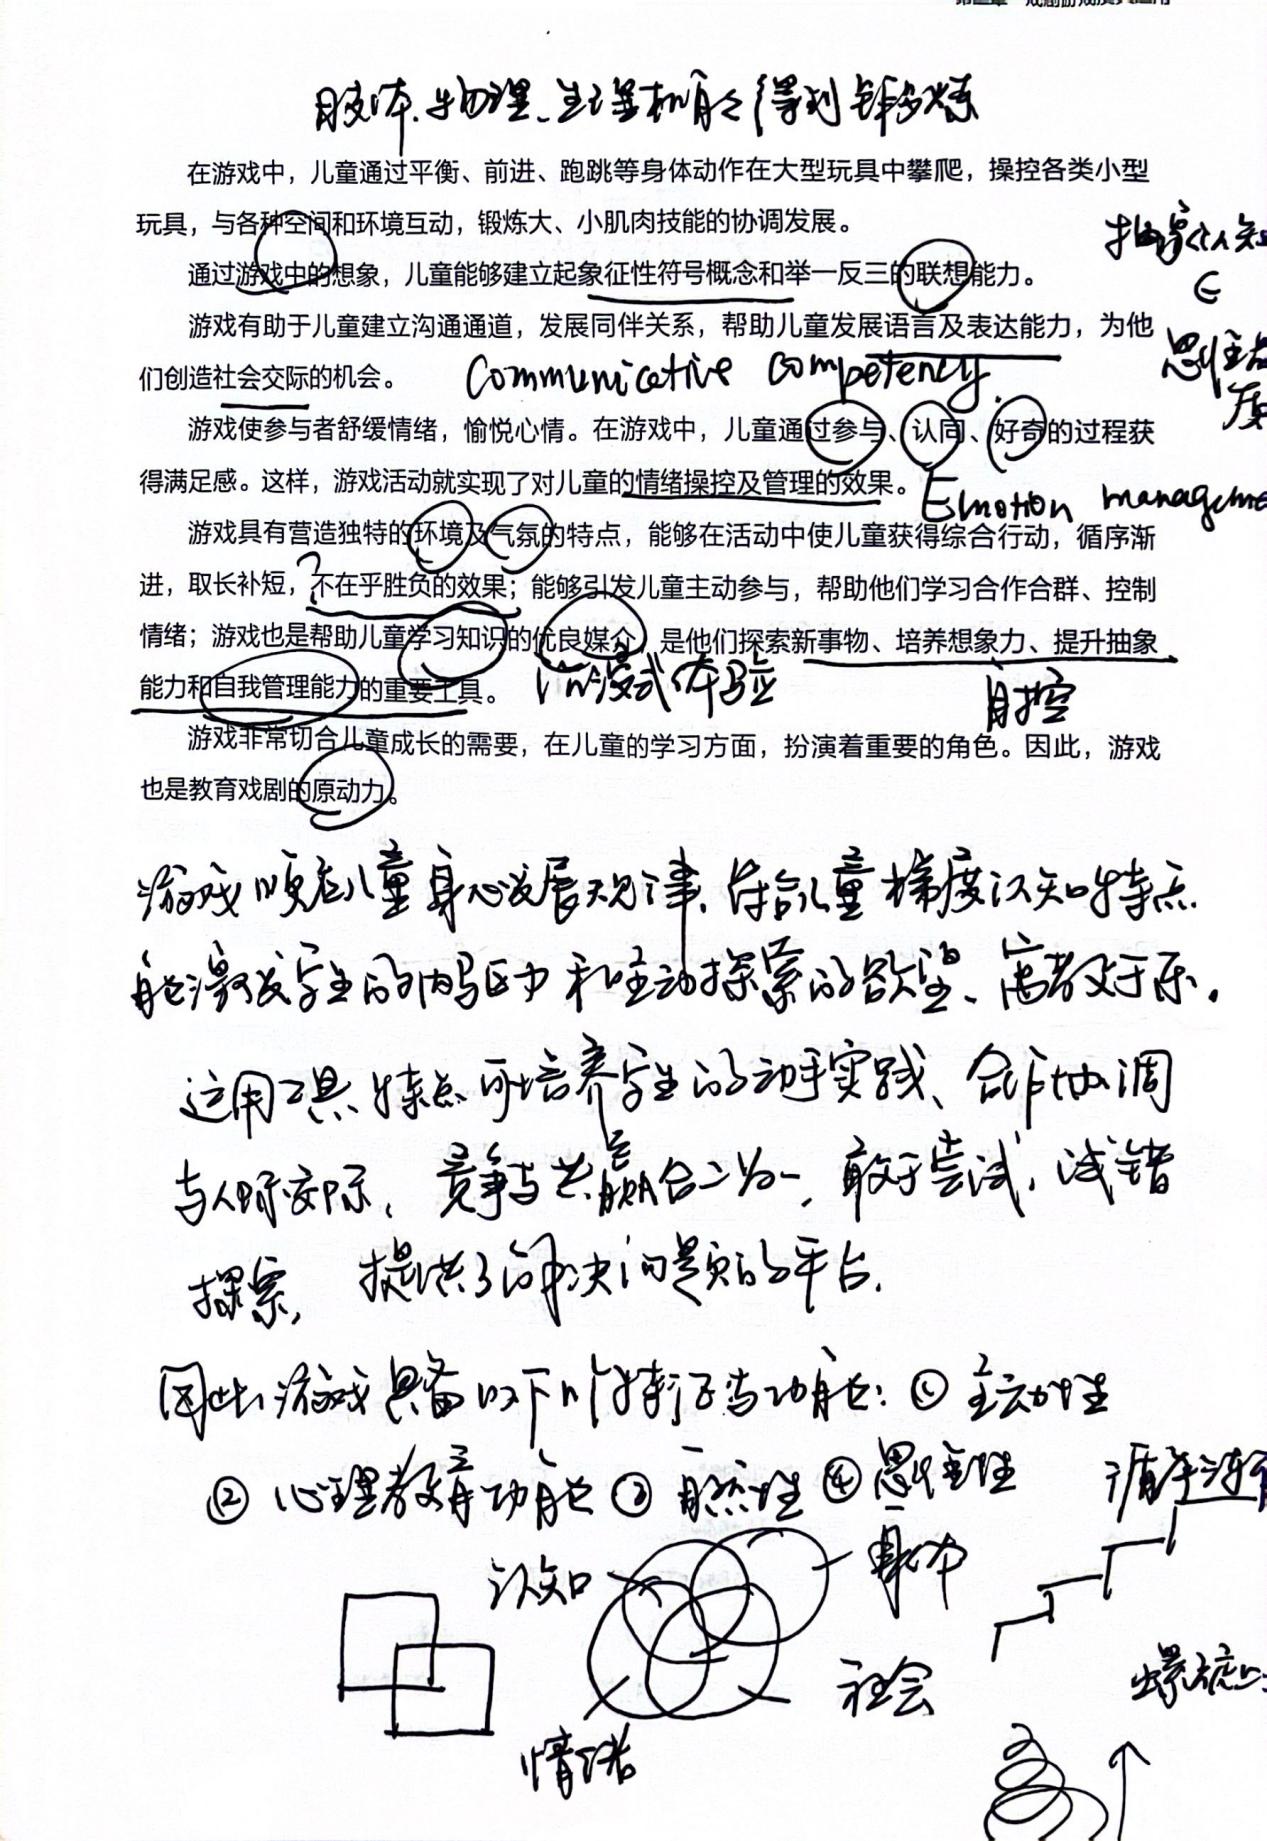 肢体、物理、生理机能得到锻炼
在游戏中，儿童通过平衡、前进、跑跳等身体动作在大型玩具中攀爬，操控各类小型
玩具，与各种空间和环境互动，锻炼大、小肌肉技能的协调发展。
抽象认知
通过游戏中的想象，儿童能够建立起象征性符号概念和举一反三的联想能力。
∈
游戏有助于儿童建立沟通通道，发展同伴关系，帮助儿童发展语言及表达能力，为他
思维
度
们创造社会交际的机会。 Communicative competency.
游戏使参与者舒缓情绪，愉悦心情。在游戏中，儿童通过参与、认同、好奇的过程获
得满足感。这样，游戏活动就实现了对儿童的情绪操控及管理的效果。
Emotion manageme
游戏具有营造独特的环境及气氛的特点，能够在活动中使儿童获得综合行动，循序渐
?
进，取长补短，不在乎胜负的效果；能够引发儿童主动参与，帮助他们学习合作合群、控制
情绪；游戏也是帮助儿童学习知识的优良媒介，是他们探索新事物、培养想象力、提升抽象
能力和自我管理能力的重要工具。 沉浸式体验 自控
游戏非常切合儿童成长的需要，在儿童的学习方面，扮演着重要的角色。因此，游戏
也是教育戏剧的原动力。
游戏顺应儿童身心发展规律，符合儿童梯度认知特点
能激发学生的内驱力和主动探索的欲望、寓教于乐。
运用工具特点可培养学生的动手实践、合作协调
与人际交际，竞争与共赢合二为一，敢于尝试，试错
探索，提供了解决问题的平台.
因此游戏具备以下几个特征与功能：① 主动性
② 心理教育功能 ③ 自然性 ④ 思维性
循序渐
认知
身体
社会
螺旋上
情绪